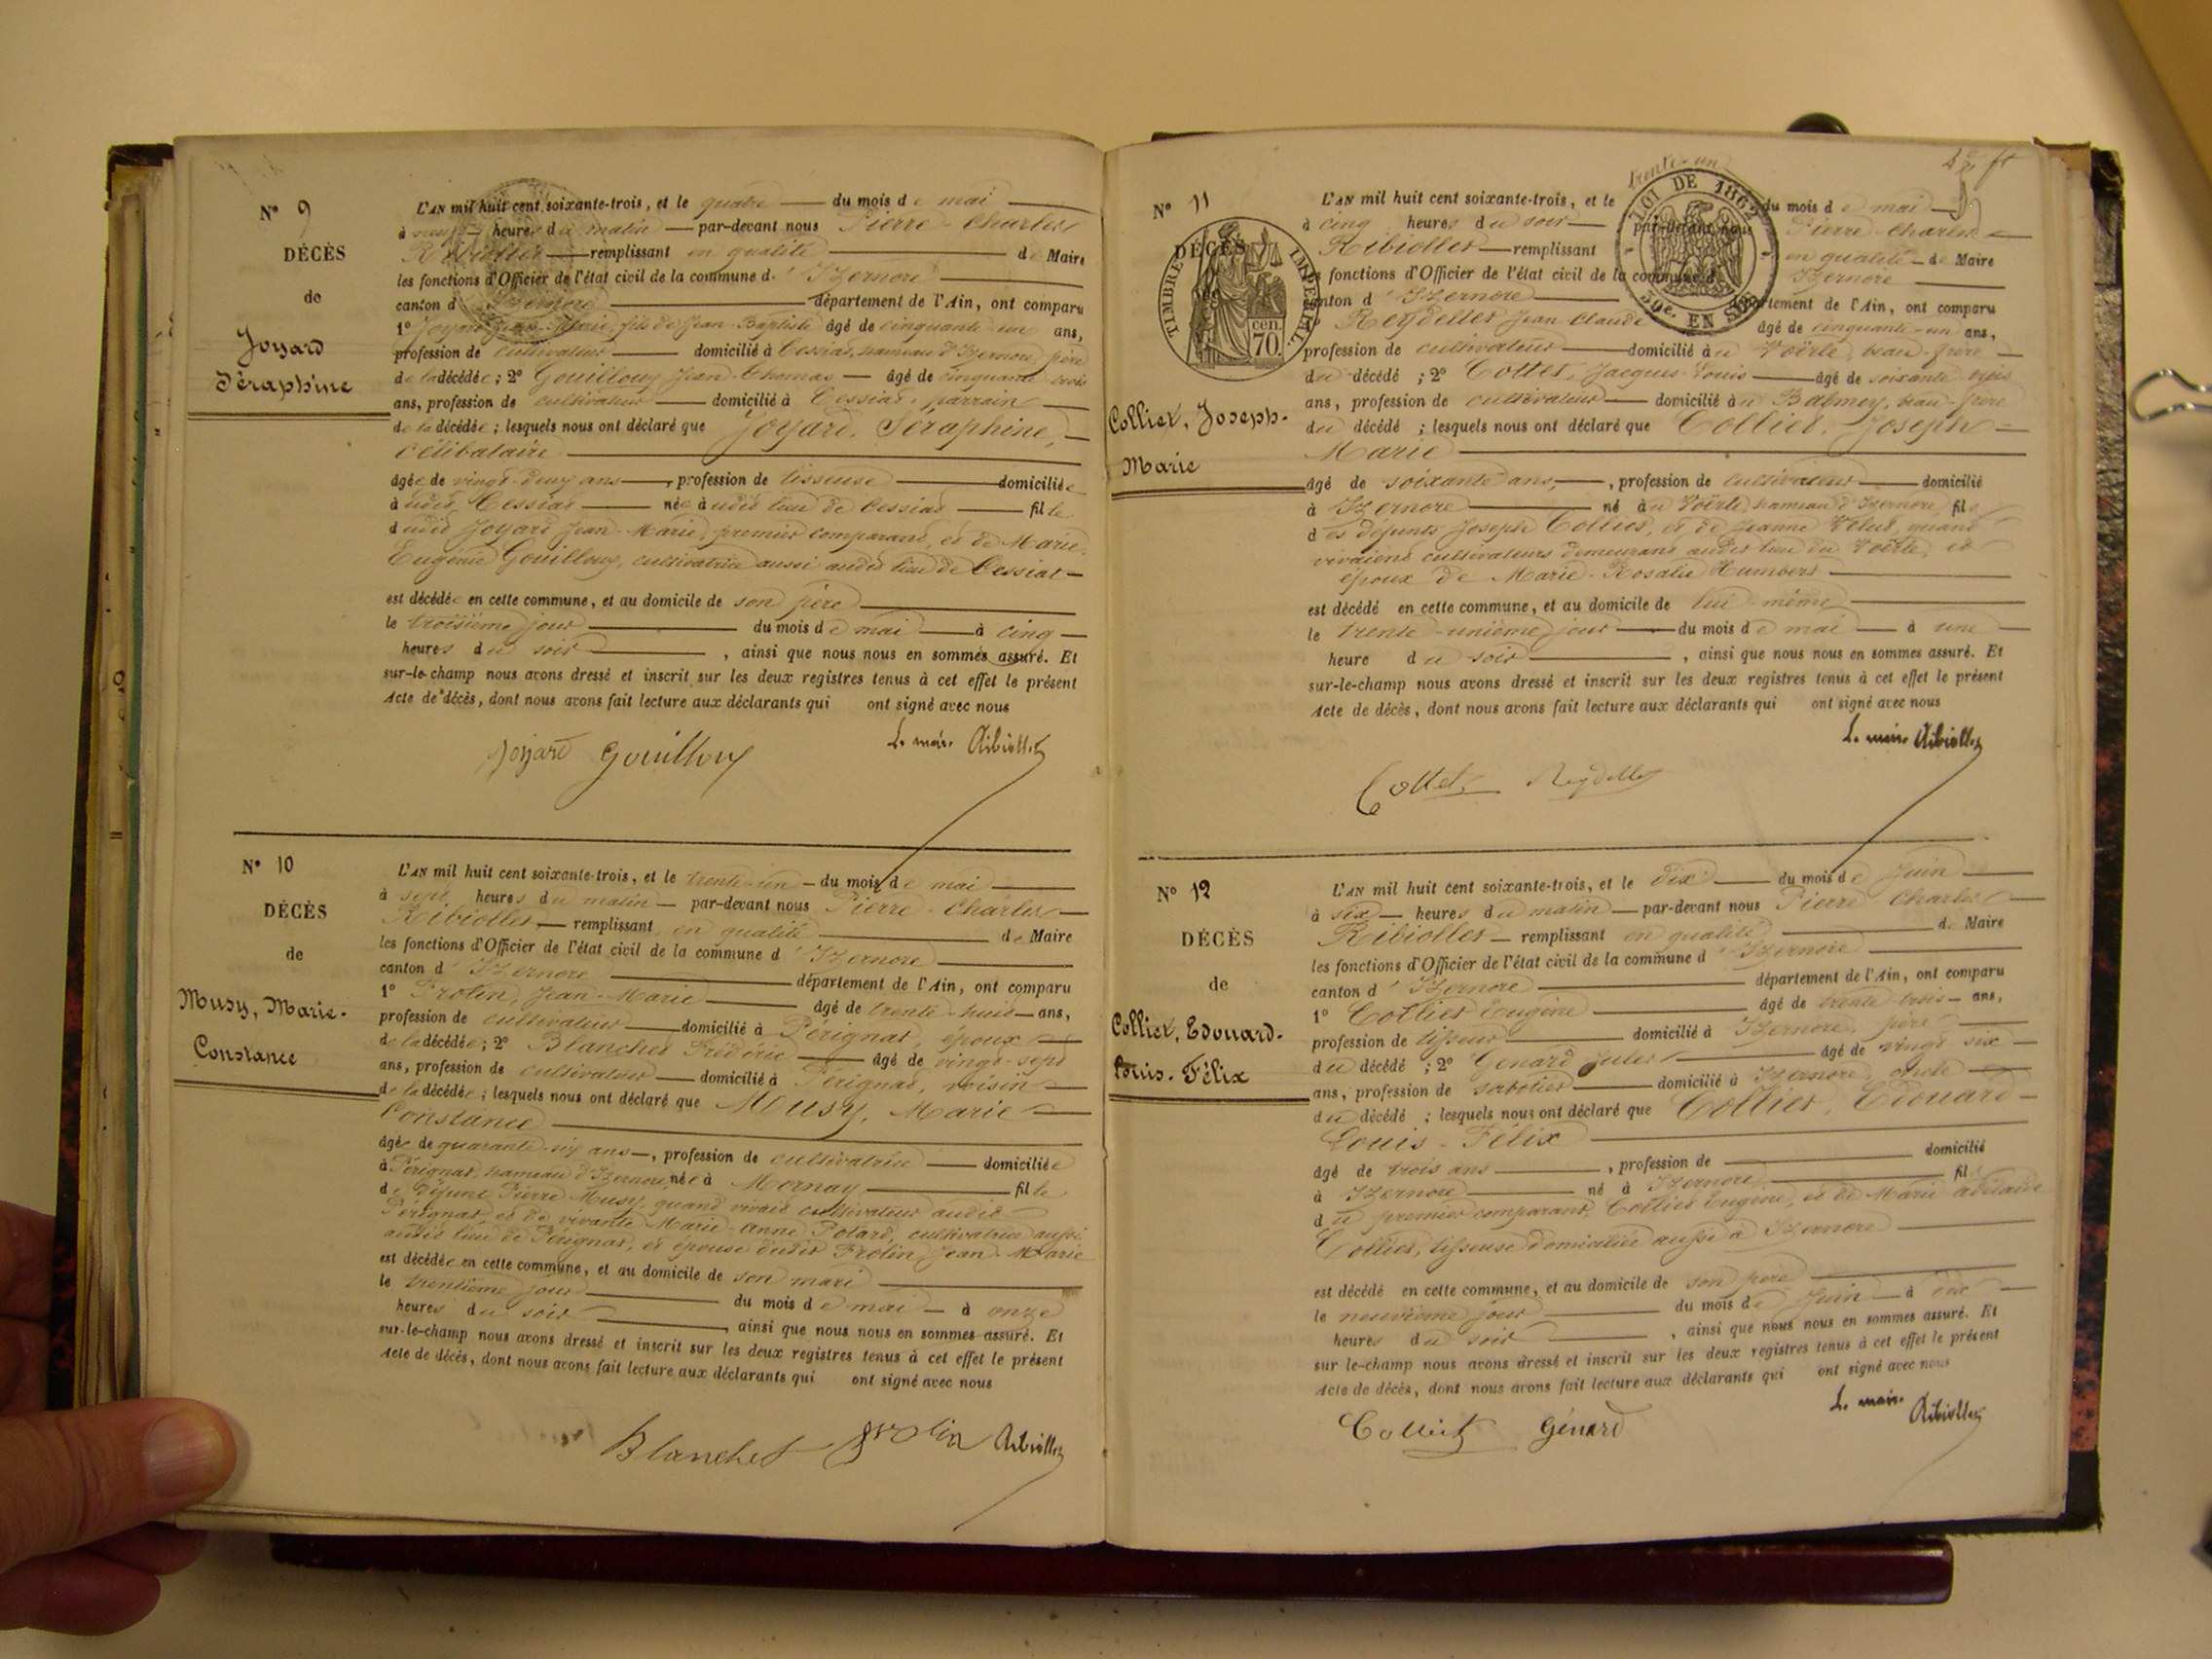 N° 9
DÉCÈS
de
Joyard
Séraphine
L'AN mil huit cent soixante-trois, et le quatre du mois de mai
à neuf heures du matin par-devant nous Pierre-Charles
Ribiollet remplissant en qualité de Maire
les fonctions d'Officier de l'état civil de la commune d'Izernore
canton d'Izernore département de l'Ain, ont comparu
1° Joyard Jean-Marie, fils de Jean-Baptiste âgé de cinquante-un ans,
profession de cultivateur domicilié à Cessiat, hameau d'Izernore, père
de la décédée ; 2° Gouilloux Jean-Thomas âgé de cinquante trois
ans, profession de cultivateur domicilié à Cessiat, parrain
de la décédée ; lesquels nous ont déclaré que Joyard, Séraphine,
célibataire
âgée de vingt-deux ans, profession de tisseuse domiciliée
à udit Cessiat née audit lieu de Cessiat fille
dudit Joyard Jean-Marie, premier comparant, et de Marie
Eugénie Gouilloux, cultivatrice aussi audit lieu de Cessiat
est décédée en cette commune, et au domicile de son père
le troisième jour du mois de mai à cinq
heures du soir, ainsi que nous nous en sommes assuré. Et
sur-le-champ nous avons dressé et inscrit sur les deux registres tenus à cet effet le présent
Acte de décès, dont nous avons fait lecture aux déclarants qui ont signé avec nous
Le maire Ribiollet
Joyard Gouilloux
N° 10
DÉCÈS
de
Musy, Marie-
Constance
L'AN mil huit cent soixante-trois, et le trente-un du mois de mai
à sept heures du matin par-devant nous Pierre-Charles
Ribiollet remplissant en qualité de Maire
les fonctions d'Officier de l'état civil de la commune d'Izernore
canton d'Izernore département de l'Ain, ont comparu
1° Frolin, Jean-Marie âgé de trente-huit ans,
profession de cultivateur domicilié à Pérignat, époux
de la décédée ; 2° Blanchet Frédéric âgé de vingt-sept
ans, profession de cultivateur domicilié à Pérignat, voisin
de la décédée ; lesquels nous ont déclaré que Musy, Marie
Constance
âgée de quarante-six ans, profession de cultivatrice domiciliée
à Pérignat, hameau d'Izernore, née à Mornay fille
de défunt Pierre Musy, quand vivait cultivateur audit
Pérignat, et de vivante Marie-Anne Potard, cultivatrice aussi
audit lieu de Pérignat, et épouse dudit Frolin Jean-Marie
est décédée en cette commune, et au domicile de son mari
le trentième jour du mois de mai à onze
heures du soir, ainsi que nous nous en sommes assuré. Et
sur-le-champ nous avons dressé et inscrit sur les deux registres tenus à cet effet le présent
Acte de décès, dont nous avons fait lecture aux déclarants qui ont signé avec nous
Blanchet Frolin Ribiollet
N° 11
DÉCÈS
TIMBRE IMPÉRIAL
70 cen.
LOI DE 1862
50c. EN SUS
Colliet, Joseph-
Marie
trente-un
L'AN mil huit cent soixante-trois, et le du mois de mai
à cinq heures du soir par-devant nous Pierre-Charles
Ribiollet remplissant en qualité de Maire
les fonctions d'Officier de l'état civil de la commune d'Izernore
canton d'Izernore département de l'Ain, ont comparu
1° Reydellet Jean Claude âgé de cinquante-un ans,
profession de cultivateur domicilié au Voërle, beau-frère
du décédé ; 2° Cottet, Jacques-Louis âgé de soixante trois
ans, profession de cultivateur domicilié au Balmey, beau-frère
du décédé ; lesquels nous ont déclaré que Colliet, Joseph
Marie
âgé de soixante ans, profession de cultivateur domicilié
à Izernore né au Voërle, hameau d'Izernore, fils
des défunts Joseph Colliet, et de Jeanne Velut, quand
vivaient cultivateurs demeurant audit lieu du Voërle, et
époux de Marie-Rosalie Humbert
est décédé en cette commune, et au domicile de lui-même
le trente-unième jour du mois de mai à une
heure du soir, ainsi que nous nous en sommes assuré. Et
sur-le-champ nous avons dressé et inscrit sur les deux registres tenus à cet effet le présent
Acte de décès, dont nous avons fait lecture aux déclarants qui ont signé avec nous
Le maire Ribiollet
Cottet Reydellet
N° 12
DÉCÈS
de
Colliet, Edouard-
Louis-Félix
L'AN mil huit cent soixante-trois, et le dix du mois de Juin
à six heures du matin par-devant nous Pierre Charles
Ribiollet remplissant en qualité de Maire
les fonctions d'Officier de l'état civil de la commune d'Izernore
canton d'Izernore département de l'Ain, ont comparu
1° Colliet Eugène âgé de trente-trois ans,
profession de tisseur domicilié à Izernore, père
du décédé ; 2° Genard Jules âgé de vingt six
ans, profession de sabotier domicilié à Izernore, oncle
du décédé ; lesquels nous ont déclaré que Colliet Edouard
Louis-Félix
âgé de trois ans, profession de domicilié
à Izernore né à Izernore fils
du premier comparant, Colliet Eugène, et de Marie Adélaïde
Colliet, tisseuse domiciliée aussi à Izernore
est décédé en cette commune, et au domicile de son père
le neuvième jour du mois de Juin à dix
heures du soir, ainsi que nous nous en sommes assuré. Et
sur le-champ nous avons dressé et inscrit sur les deux registres tenus à cet effet le présent
Acte de décès, dont nous avons fait lecture aux déclarants qui ont signé avec nous
Le maire Ribiollet
Colliet Génard